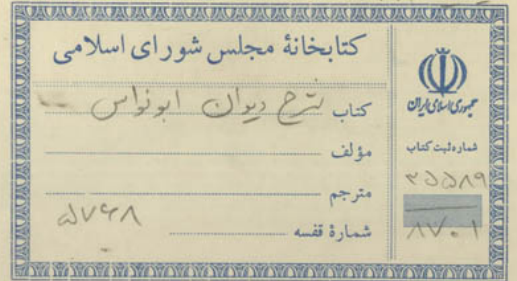 کتابخانهٔ مجلس شورای اسلامی
کتاب شرح دیوان ابونواس
مؤلف
مترجم
شمارهٔ قفسه ۵۷۶۸
جمهوری اسلامی ایران
شماره ثبت کتاب
۳۵۵۸۹
۸۷۰۱